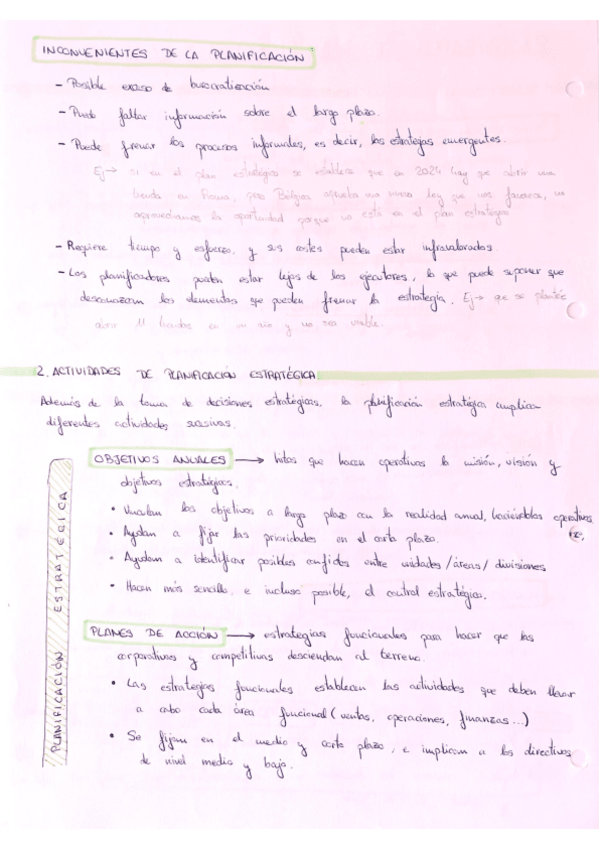 INCONVENIENTES DE LA PLANIFICACIÓN
- Posible exceso de burocratización
- Puede faltar información sobre el largo plazo.
- Puede frenar los procesos informales, es decir, las estrategias emergentes.
Ej → si en el plan estratégico se establece que en 2024 hay que abrir una
tienda en Roma, pero Bélgica aprueba una nueva ley que nos favorece, no
aprovechamos la oportunidad porque no está en el plan estratégico
- Requiere tiempo y esfuerzo, y sus costes pueden estar infravalorados.
- Los planificadores pueden estar lejos de los ejecutores, lo que puede suponer que
desconozcan los elementos que pueden frenar la estrategia. Ej → que se plantée
abrir 11 tiendas en un año y no sea viable.
2. ACTIVIDADES DE PLANIFICACIÓN ESTRATÉGICA
Además de la toma de decisiones estratégicas, la planificación estratégica implica
diferentes actividades sucesivas.
PLANIFICACIÓN ESTRATÉGICA
OBJETIVOS ANUALES → hitos que hacen operativos la misión, visión y
objetivos estratégicos.
• Vinculan los objetivos a largo plazo con la realidad anual, haciéndolos operativos
• Ayudan a fijar las prioridades en el corto plazo.
• Ayudan a identificar posibles conflictos entre unidades / áreas / divisiones
• Hacen más sencillo, e incluso posible, el control estratégico.
PLANES DE ACCIÓN → estrategias funcionales para hacer que las
corporativas y competitivas desciendan al terreno.
• Las estrategias funcionales establecen las actividades que deben llevar
a cabo cada área funcional (ventas, operaciones, finanzas...)
• Se fijan en el medio y corto plazo, e implican a los directivos
de nivel medio y bajo.